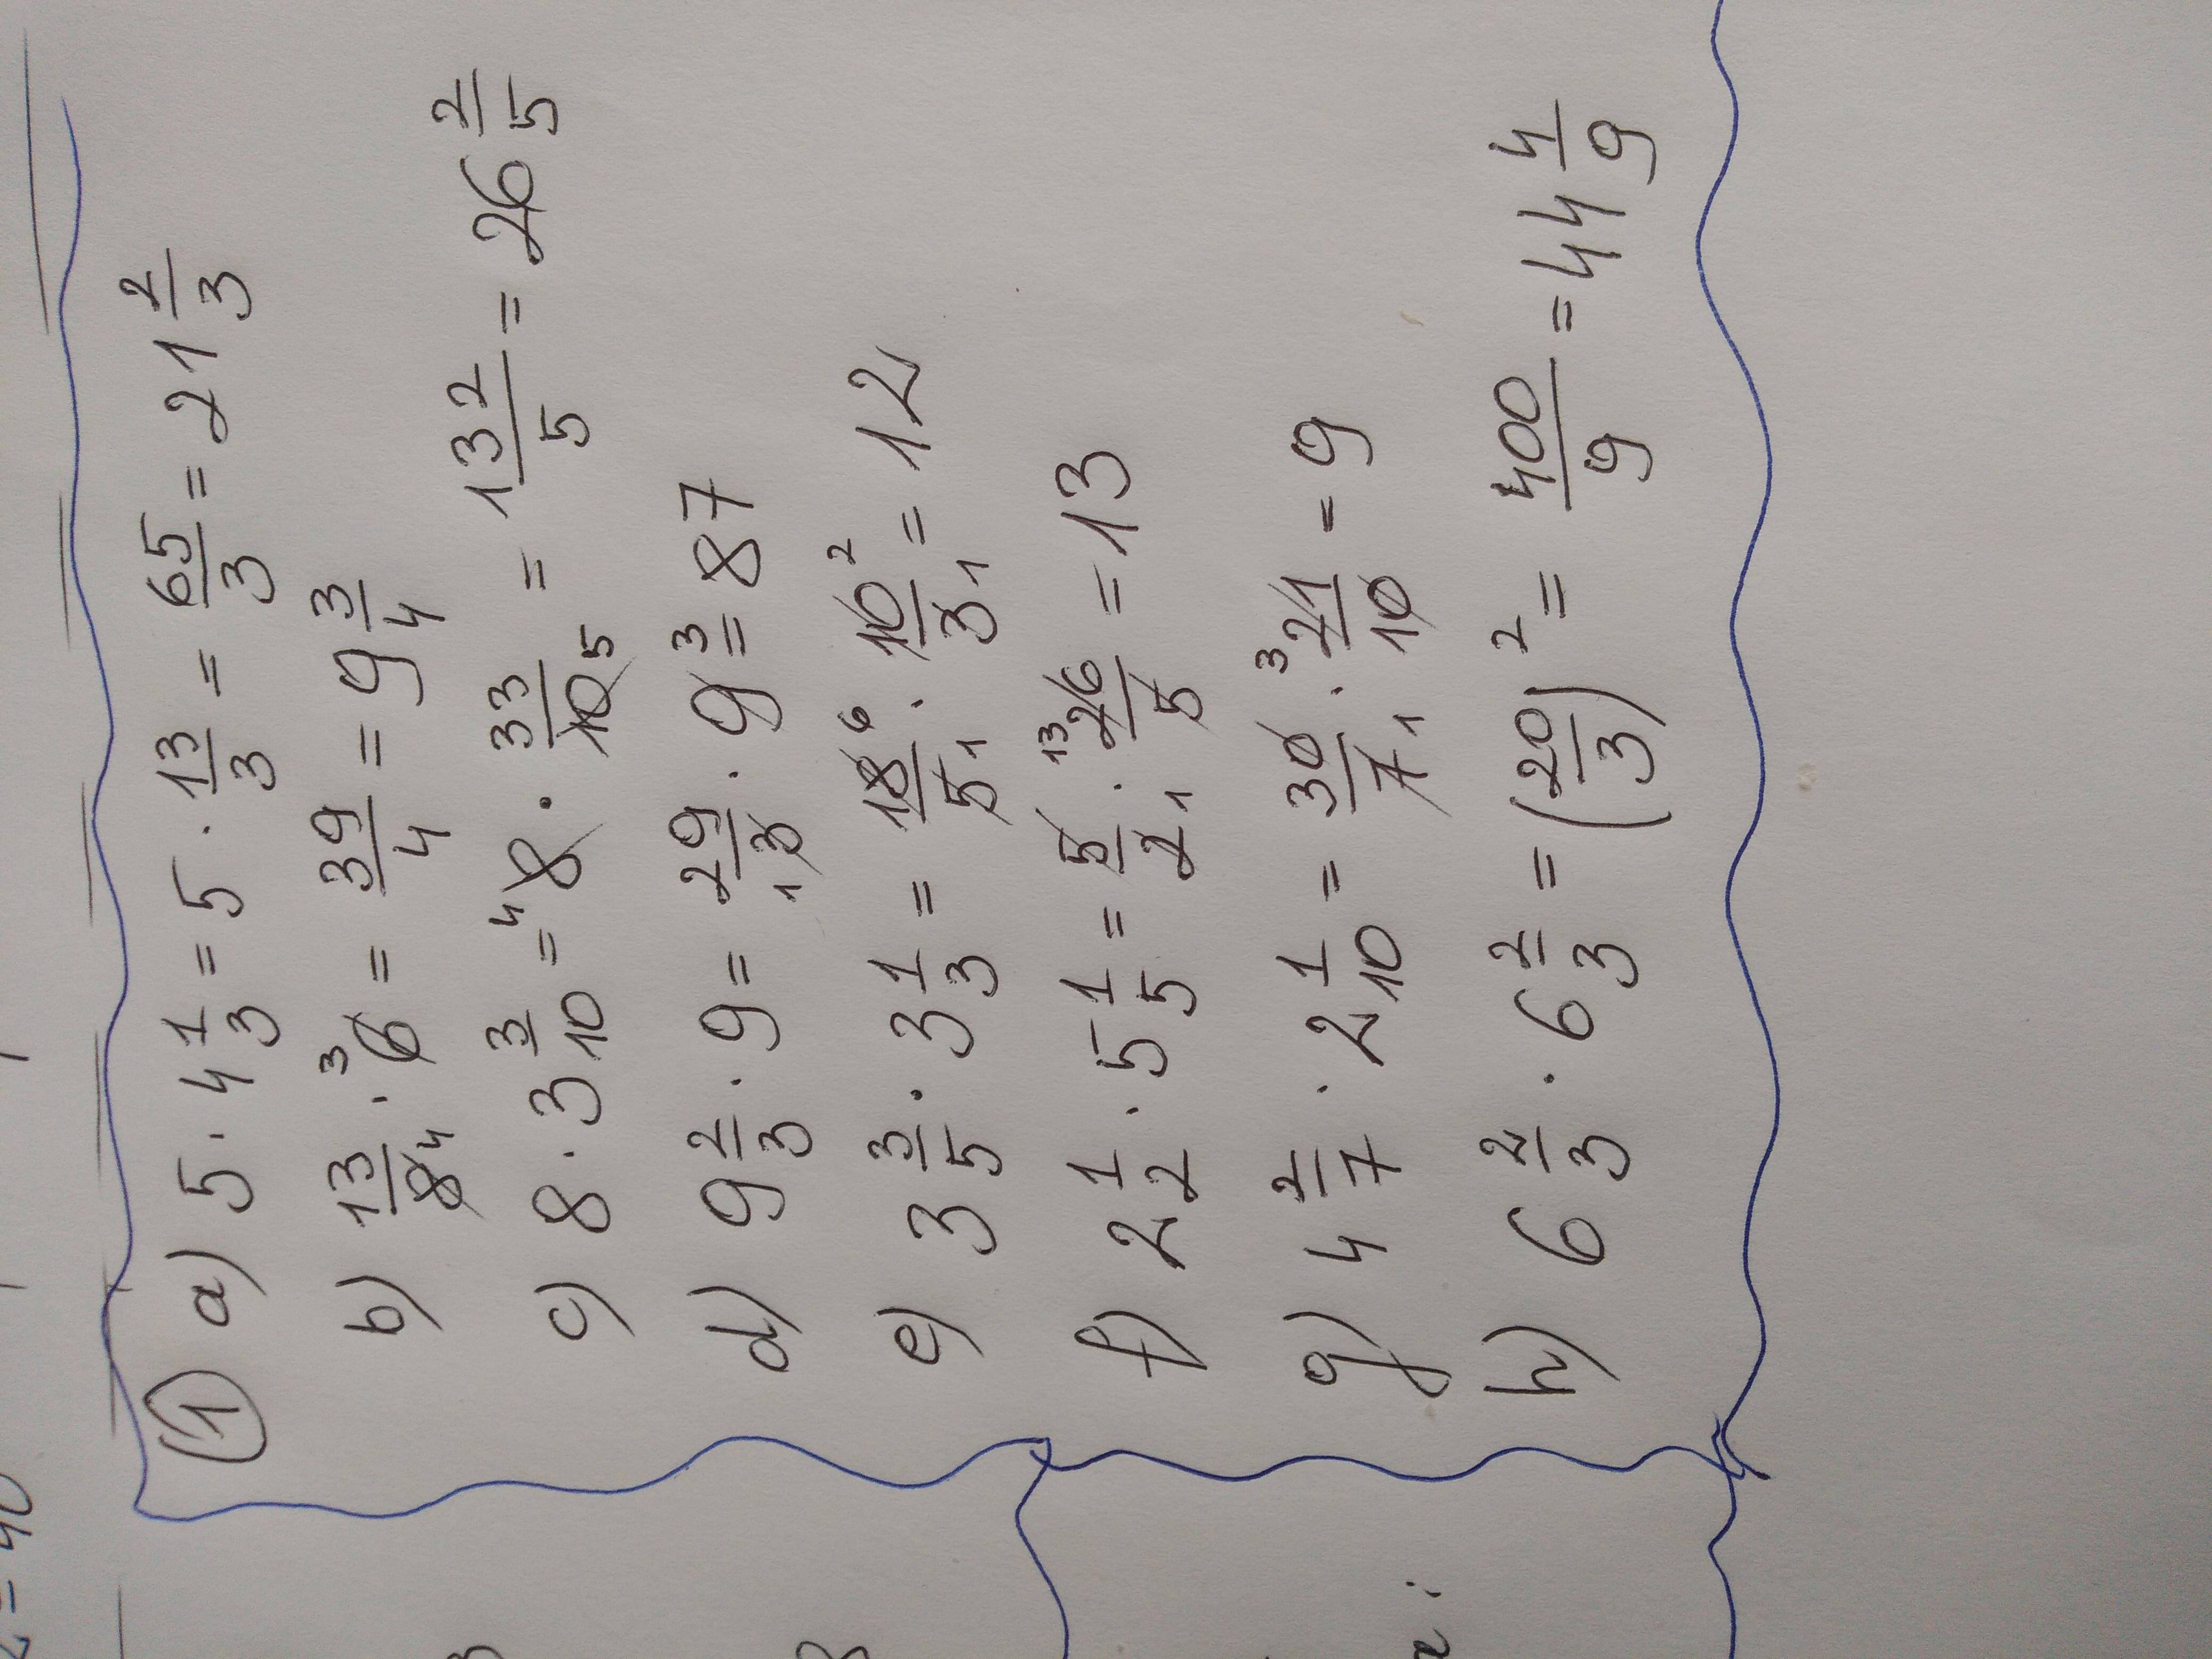 ① a) 5 · 4 1/3 = 5 · 13/3 = 65/3 = 21 2/3
b) 13/8 4 · 3 6 = 39/4 = 9 3/4
c) 8 · 3 3/10 = 4 8 · 33/10 5 = 132/5 = 26 2/5
d) 9 2/3 · 9 = 29/1 3 · 9 3 = 87
e) 3 3/5 · 3 1/3 = 18 6/5 1 · 10 2/3 1 = 12
f) 2 1/2 · 5 1/5 = 5/2 1 · 13 26/5 = 13
g) 4 2/7 · 2 1/10 = 30/7 1 · 3 21/10 = 9
h) 6 2/3 · 6 2/3 = (20/3)² = 400/9 = 44 4/9